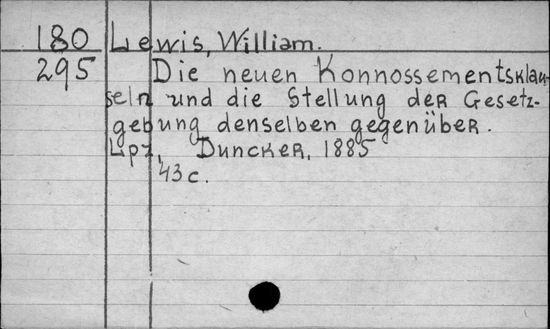 180 Lewis, William.
295 Die neuen Konnossementsklau-
seln und die Stellung der Gesetz-
gebung denselben gegenüber.
Lpz, Duncker, 1885
43 c.